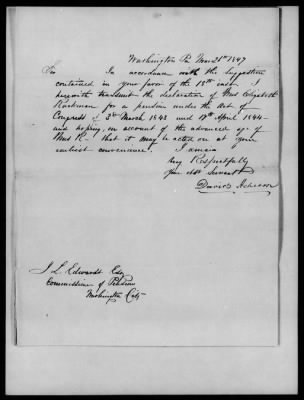 Washington Pa Mar 31st 1847
Sir In accordance with the suggestion
contained in your favor of the 13th I
herewith transmit the declaration of Mrs Elizabeth
for a pension under the Act of
Congress of 3rd March 1843 and 17th April 1844 -
and hoping, on account of the advanced age of
Mrs R. that it may be acted on at your
earliest convenience. I remain
Very Respectfully
Your Obt Servant
David Acheson
J L Edwards Esq
Commissioner of Pensions
Washington City